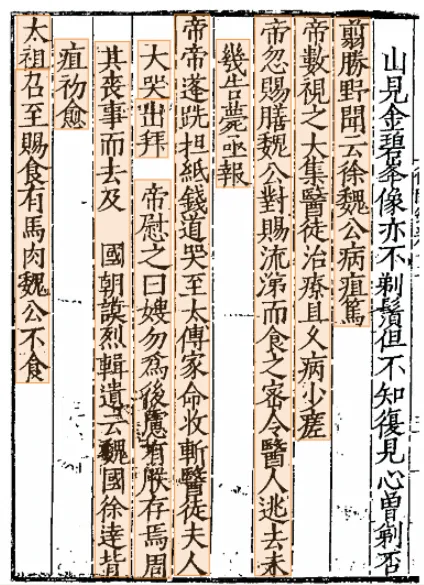 山見金碧峯像亦不剃鬚但不知復見心曽剃否
翦勝野聞云徐魏公病疽篤
帝數視之大集醫徒治療且久病少瘥
帝忽賜膳魏公對賜流涕而食之宻令醫人逃去未
幾告薨亟報
帝帝蓬跣担紙錢道哭至太傅家命收斬醫徒夫人
大哭出拜 帝慰之曰嫂勿爲後慮有朕存焉周
其喪事而去及 國朝謨烈輯遺云魏國徐逹背
疽初愈
太祖召至賜食有馬肉魏公不食